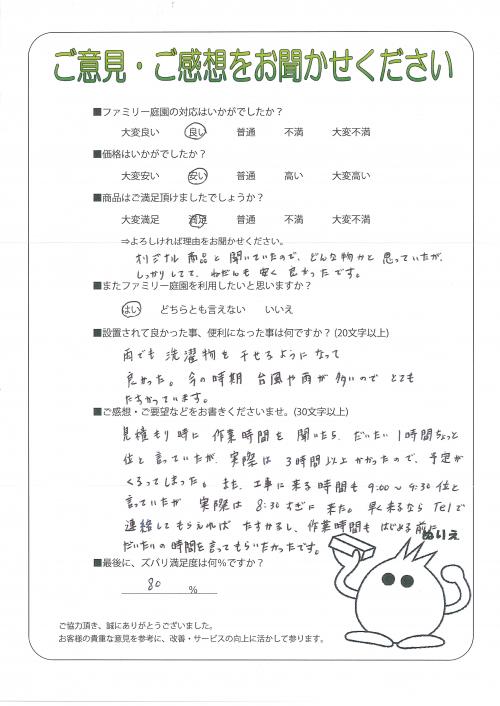 ご意見・ご感想をお聞かせください
■ファミリー庭園の対応はいかがでしたか？
大変良い 良い 普通 不満 大変不満
■価格はいかがでしたか？
大変安い 安い 普通 高い 大変高い
■商品はご満足頂けましたでしょうか？
大変満足 満足 普通 不満 大変不満
⇒よろしければ理由をお聞かせください。
オリジナル商品と聞いていたので、どんな物かと思っていたが、
しっかりしてて、ねだんも安く良かったです。
■またファミリー庭園を利用したいと思いますか？
はい どちらとも言えない いいえ
■設置されて良かった事、便利になった事は何ですか？(20文字以上)
雨でも洗濯物を干せるようになって
良かった。今の時期台風や雨が多いのでとても
たすかっています。
■ご感想・ご要望などをお書きくださいませ。(30文字以上)
見積もり時に作業時間を聞いたら、だいたい1時間ちょっと
位と言っていたが、実際は3時間以上かかったので、予定が
くるってしまった。また、工事に来る時間も9:00～9:30位と
言っていたが実際は8:30すぎに来た。早く来るならTelで
連絡してもらえればたすかるし、作業時間もはじめる前に
だいたいの時間を言ってもらいたかったです。
ぬりえ
■最後に、ズバリ満足度は何％ですか？
80 ％
ご協力頂き、誠にありがとうございました。
お客様の貴重な意見を参考に、改善・サービスの向上に活かして参ります。